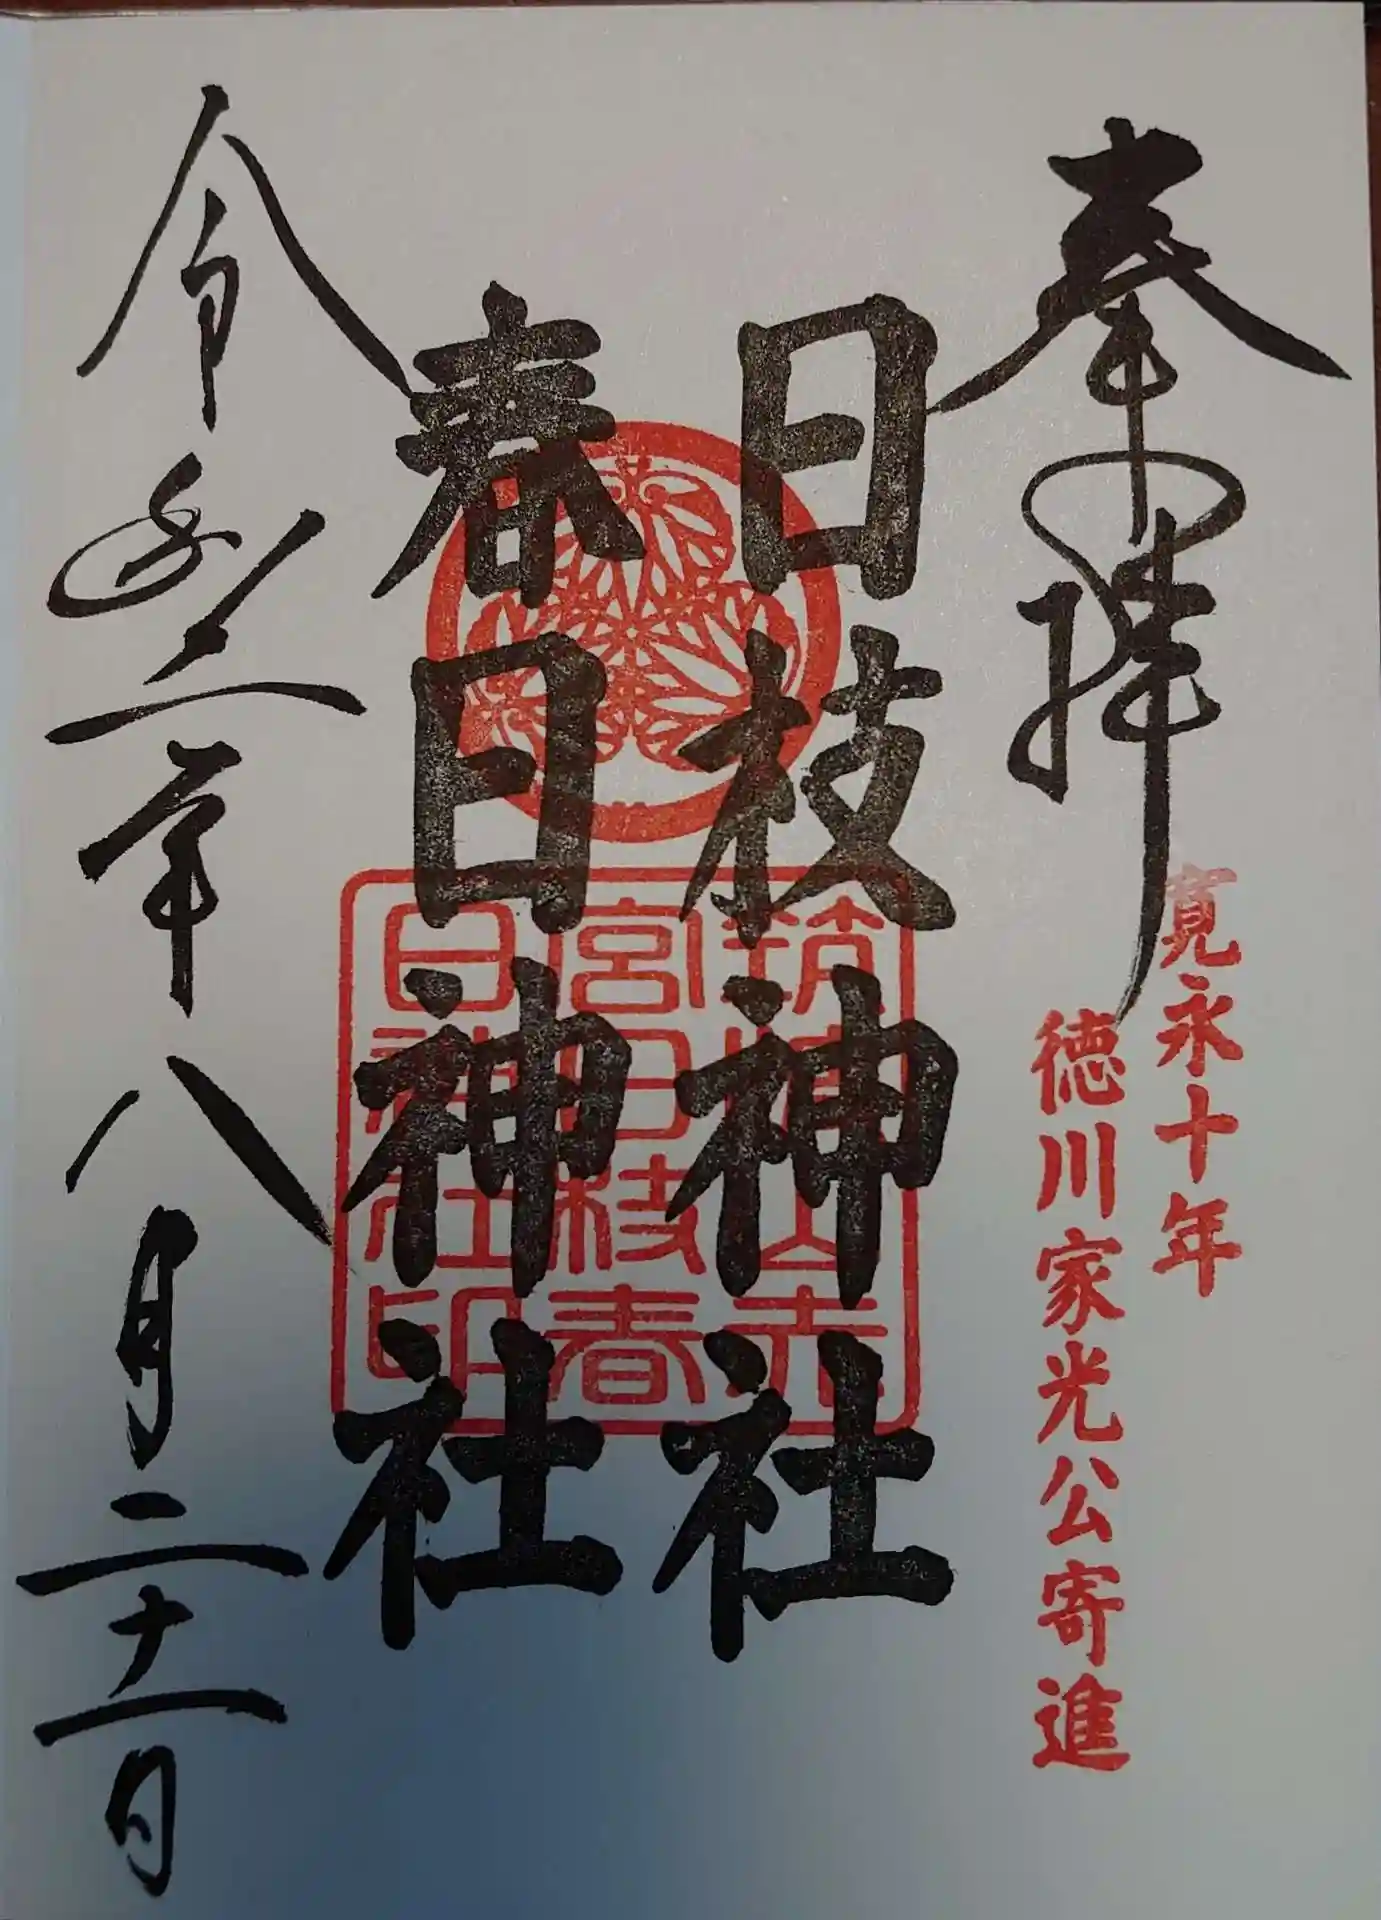 奉拝
寛永十年
徳川家光公寄進
日枝神社
春日神社
筑波山赤
宮日枝春
日神社印
令和二年八月二十一日